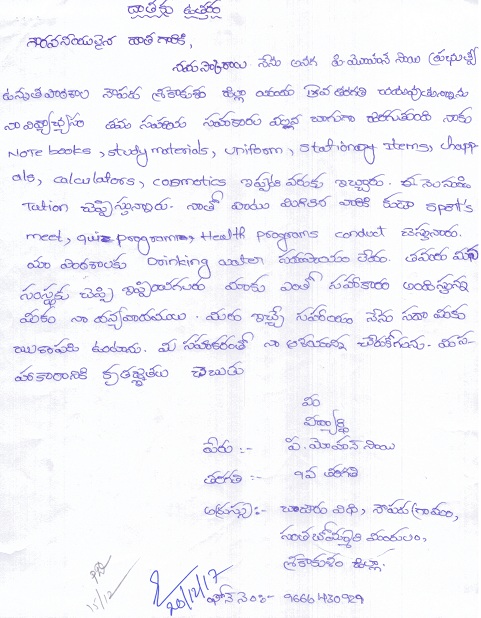 దాతకు ఉత్తరం
గౌరవనియులైన దాత గారికి,
నమస్కారాలు నేను అనగా పి మోహన్ సాయి ప్రభుత్వ
ఉన్నత పాఠశాల నౌపడ శ్రీకాకుళం జిల్లా యందు 9వ తరగతి చదువుతున్నాను
నా విద్యాభ్యాసం తమ సహాయ సహకారం వల్లన బాగుగా జరుగుతుంది నాకు
Note books, study materials, uniform, stationary items, chapp-
als, calculators, cosmetics ఇప్పటి వరకు ఇచ్చారు. ఈ నెల నుండి
Tution చెప్పిస్తున్నారు. నాతో పాటు మిగితా వారికి కూడా sport's
meet, quiz program, Health programs conduct చేస్తున్నారు.
మా పాఠశాలకు Drinking water సదుపాయం లేదు. తమరు మన
సంస్థకు చెప్పి ఇప్పించగలరు మాకు ఎంతో సహకారం అందిస్తున్న
మీకు నా ధన్యవాదములు. మీరు ఇచ్చే సహాయం నేను సదా మీకు
ఋణపడి ఉంటాను. మీ సహకారంతో నా ఆశయాన్ని చేరుకోగలను. మీ స-
హకారానికి కృతజ్ఞతలు చెబుతు
మీ
విద్యార్థి
పేరు :- పి. మోహన్ సాయి
తరగతి :- 9వ తరగతి
అడ్రస్సు :- బాజారు వీధి, నౌపడ (గ్రామం),
సంతబొమ్మాళి మండలం,
శ్రీకాకుళం జిల్లా.
ఫోన్ నెం:- 9666430929
15/12
20/12/17